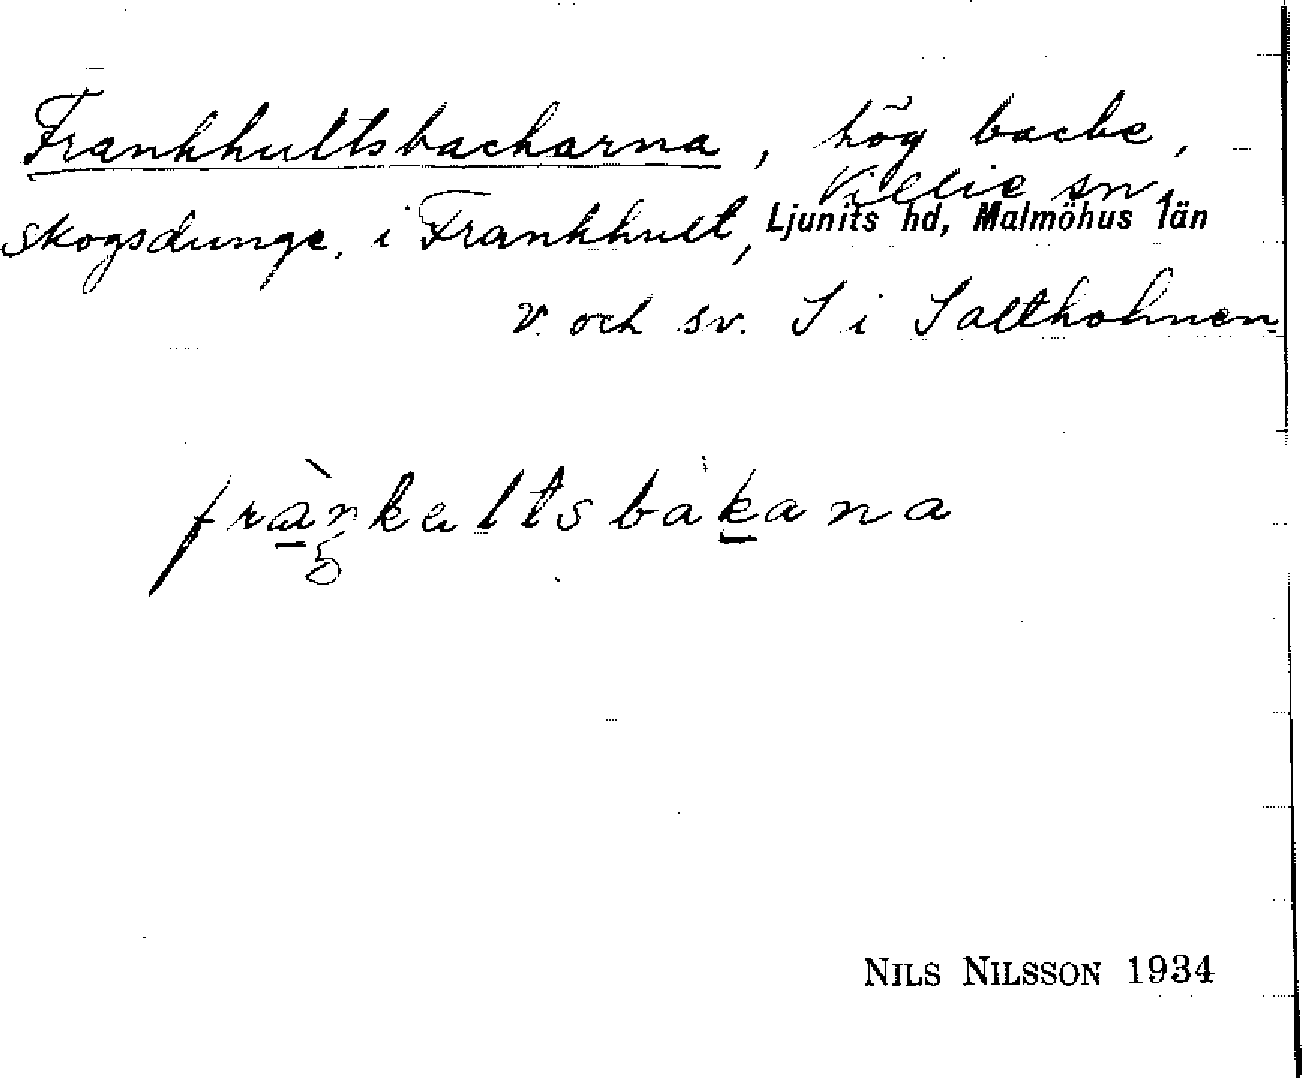 Frankhultsbackarna, hög backe,
Villie sn,
skogsdunge, i Frankhult, Ljunits hd, Malmöhus län
v. och sv. S i Saltholmen
frànkaltsbàkana
NILS NILSSON 1934